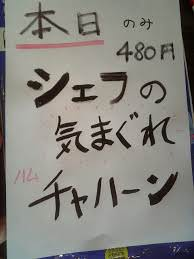 本日のみ
480円
シェフの
気まぐれ
ハム
チャハーン